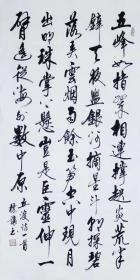 五峰如指翠相連撑起炎荒半
壁天夜盥銀河摘星斗朝探碧
落弄雲烟雨餘玉笋空中現月
出明珠掌上懸豈是巨靈伸一
臂遥從海外數中原